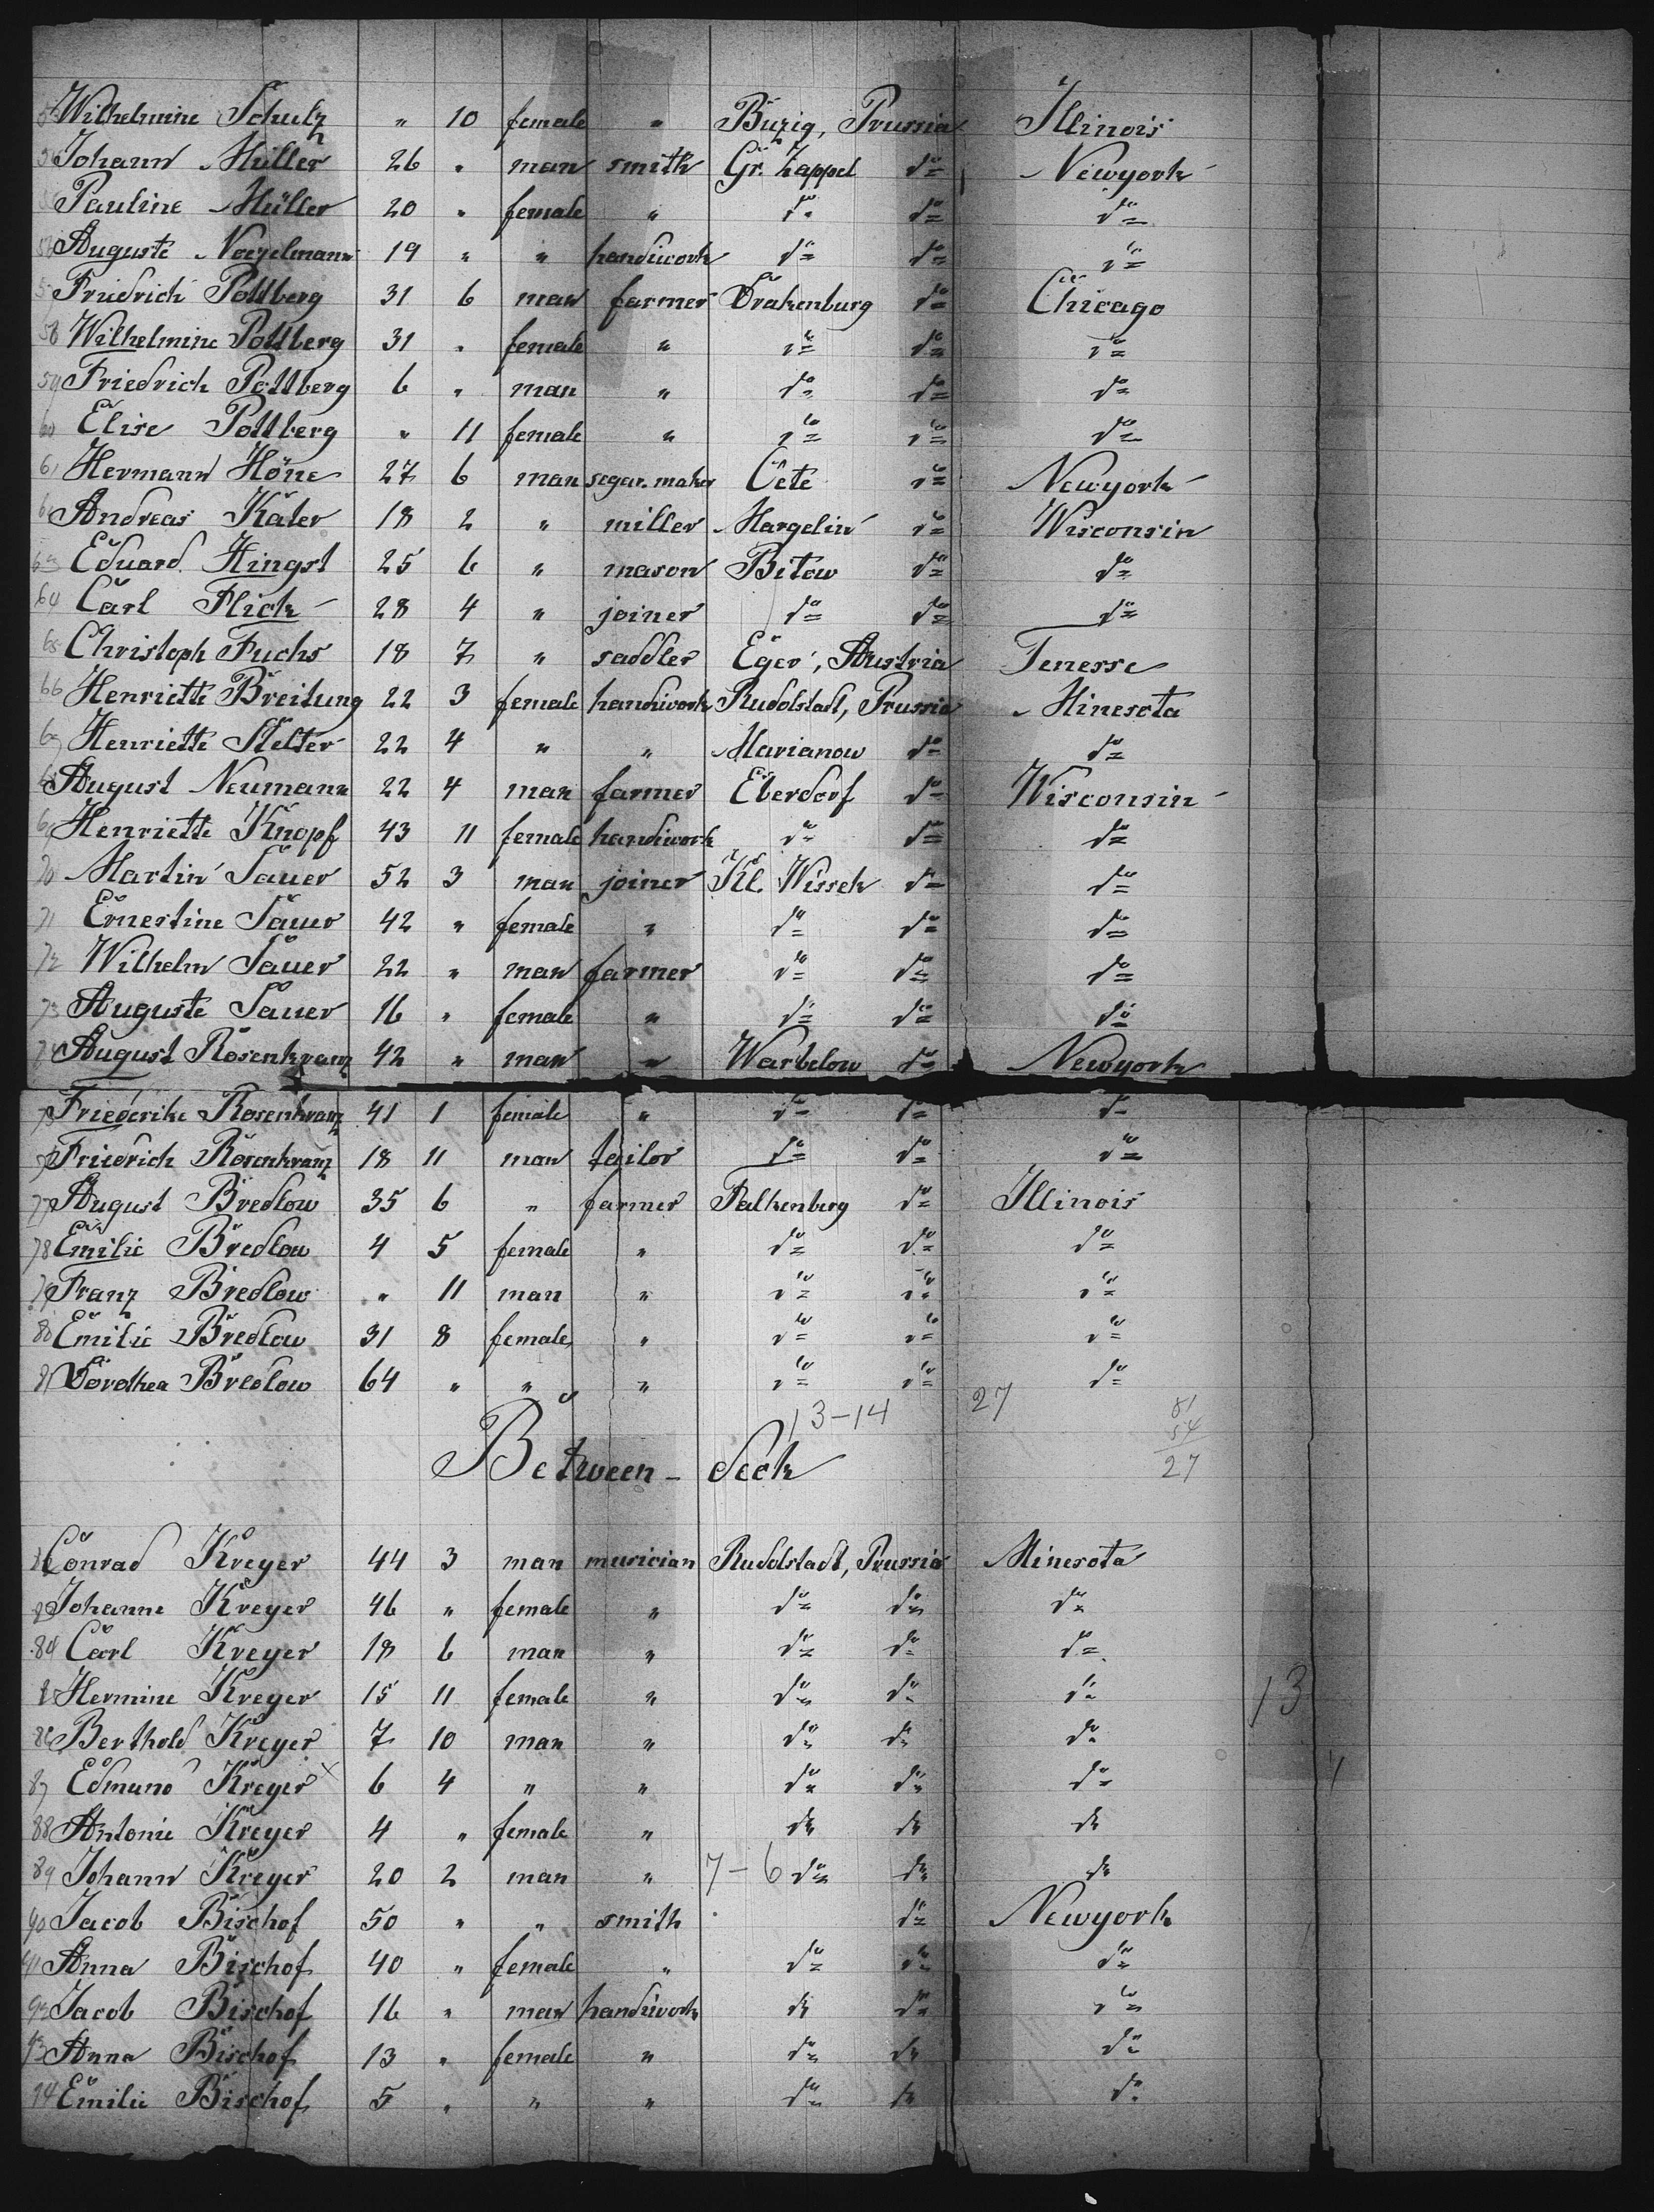 Wilhelmine Schulz " 10 female " Büzig, Prussia Illinois
Johann Müller 26 " man smith Gr. Zappel do Newyork
Pauline Müller 20 " female " do do do
Auguste 19 " " handiwork do do do
Friedrich Pottberg 31 6 man farmer Drakenburg do Chicago
58 Wilhelmine Pottberg 31 " female " do do do
59 Friedrich Pottberg 6 " man " do do do
60 Elise Pottberg " 11 female " do do do
61 Hermann Höne 27 6 man segar. maker Oete do Newyork
62 Andreas Käter 18 2 " miller Margelin do Wisconsin
63 Eduard Hingst 25 6 " mason Bitow do do
64 Carl Flick 28 4 " joiner do do do
65 Christoph Fuchs 18 7 " saddler Eger, Austria Tenesse
66 Henriette Breitung 22 3 female handiwork Rudolstadt, Prussia Minesota
67 Henriette Stelter 22 4 " " Marianow do do
68 August Neumann 22 4 man farmer Eberdorf do Wisconsin
69 Henriette Knopf 43 11 female handiwork do do do
70 Martin Sauer 52 3 man joiner Kl. Wissek do do
71 Ernestine Sauer 42 " female " do do do
72 Wilhelm Sauer 22 " man farmer do do do
73 Auguste Sauer 16 " female " do do do
74 August Rosenkranz 42 " man " Warbelow do Newyork
75 Friederike Rosenkranz 41 1 female " do do do
76 Friedrich Rosenkranz 18 11 man tailor do do do
77 August Bredlow 35 6 " farmer Falkenberg do Illinois
78 Emilie Bredlow 4 5 female " do do do
79 Franz Bredlow " 11 man " do do do
80 Emilie Bredlow 31 8 female " do do do
81 Dorothea Bredlow 64 " " " do do do
13-14 27 81
54
27
Between-deck
82 Conrad Kreyer 44 3 man musician Rudolstadt, Prussia Minesota
83 Johanne Kreyer 46 " female " do do do
84 Carl Kreyer 18 6 man " do do do
85 Hermine Kreyer 15 11 female " do do do 13
86 Berthold Kreyer 7 10 man " do do do
87 Edmund Kreyer x 6 4 " " do do do
88 Antonie Kreyer 4 " female " do do do
89 Johann Kreyer 20 2 man " 7-6 do do do
90 Jacob Bischof 50 " " smith do Newyork
91 Anna Bischof 40 " female " do do do
92 Jacob Bischof 16 " man handiwork do do do
93 Anna Bischof 13 " female " do do do
94 Emilie Bischof 5 " " " do do do